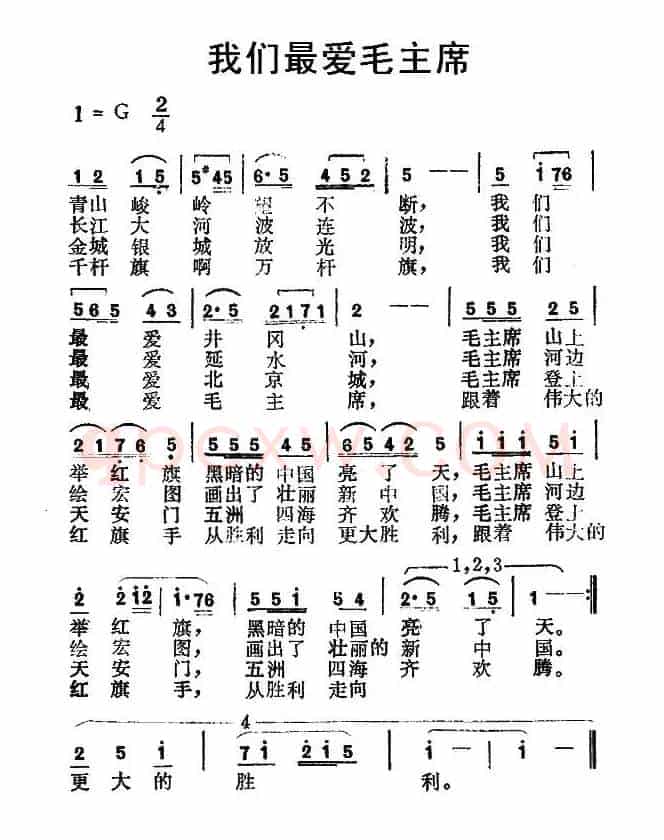 我们最爱毛主席
1 = G 2/4
1 2 1 5 | 5 #4 5 | 6· 5 4 5 2 | 5 — — | 5 i 7 6 |
青山峻岭望不断，我们
长江大河波连波，我们
金城银城放光明，我们
千杆旗啊万杆旗，我们
5 6 5 4 3 | 2· 5 2 1 7 1 | 2 — — | 5 5 5 2 5 |
最爱井冈山，毛主席山上
最爱延水河，毛主席河边
最爱北京城，毛主席登上
最爱毛主席，跟着伟大的
2 1 7 6 5 | 5 5 5 4 5 | 6 5 4 2 | i i i 5 i |
举红旗黑暗的中国亮了天，毛主席山上
绘宏图画出了壮丽新中国，毛主席河边
天安门五洲四海齐欢腾，毛主席登上
红旗手从胜利走向更大胜利，跟着伟大的
1,2,3
2 2 i 2 | i· 7 6 | 5 5 i 5 4 | 2· 5 1 5 | 1 — :||
举红旗，黑暗的中国亮了天。
绘宏图，画出了壮丽的新中国。
天安门，五洲四海齐欢腾。
红旗手，从胜利走向
4
2 5 i | 7 i 2 i 5 | i — | i — — ||
更大的胜利。
qpcxw.COM